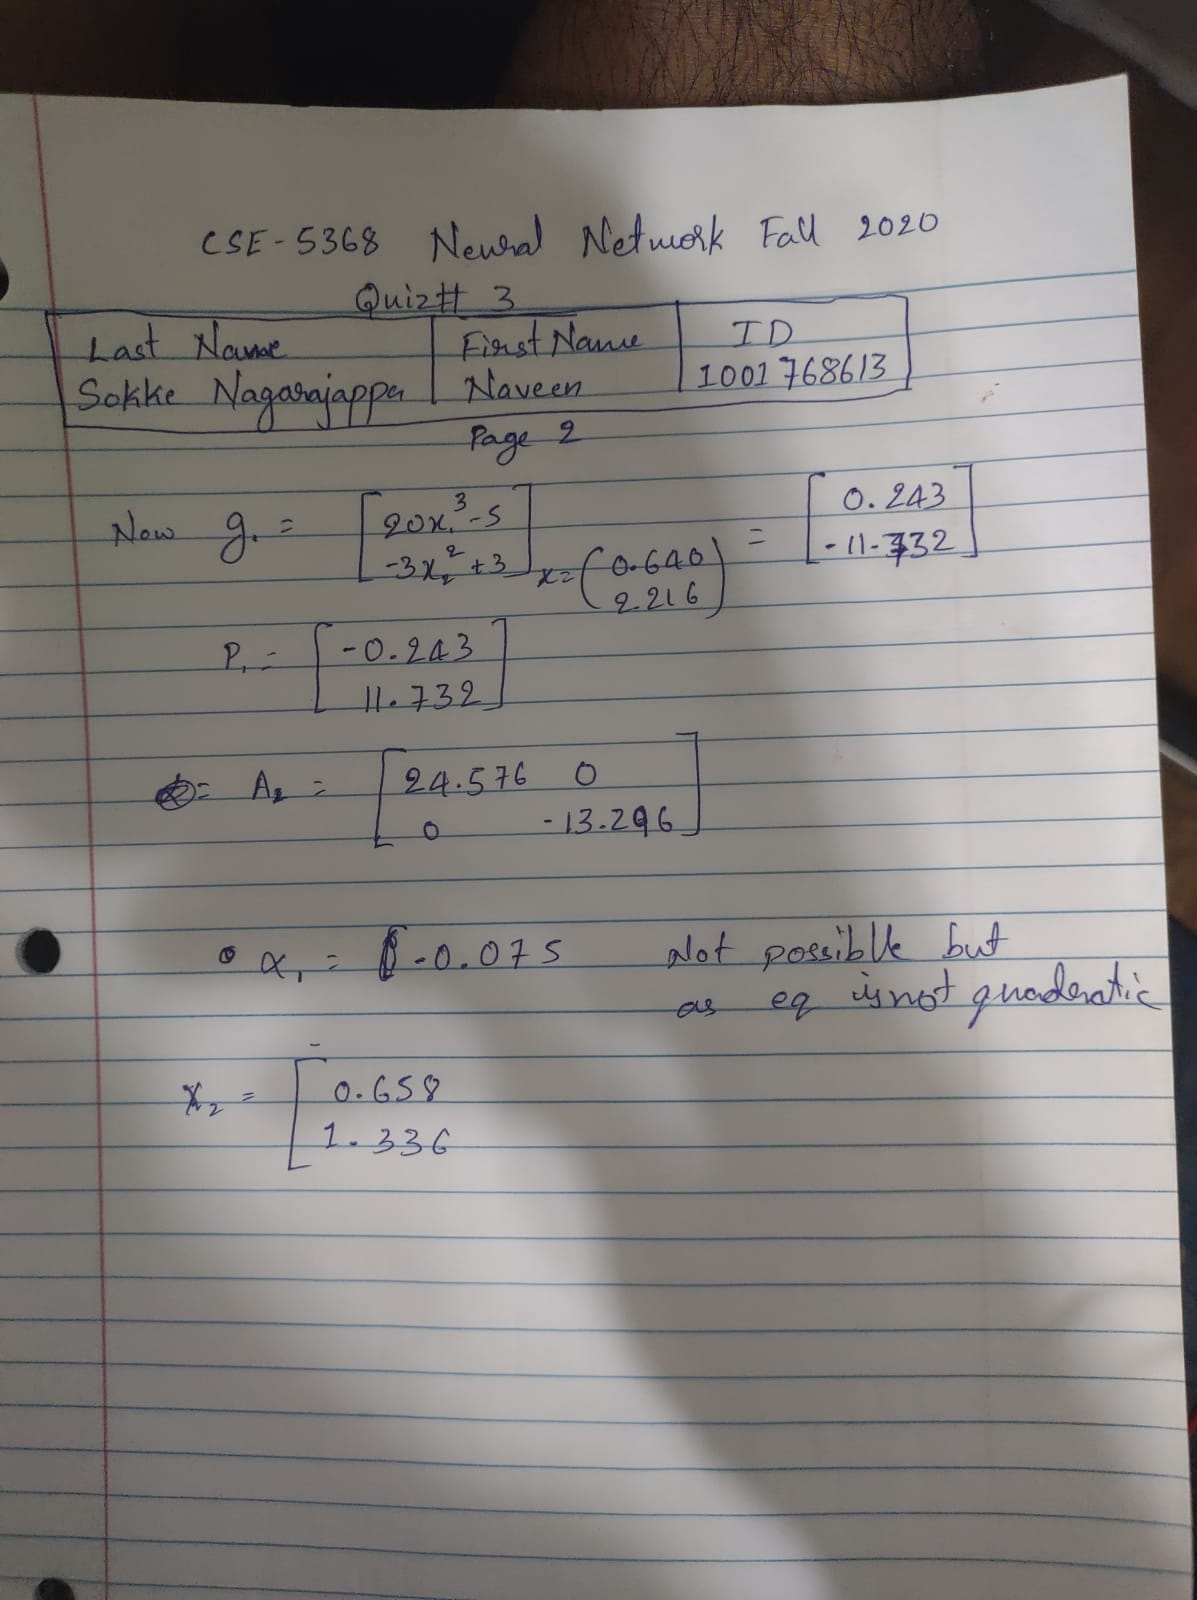 CSE-5368 Neural Network Fall 2020
Quiz# 3
Last Name First Name ID
Sokke Nagarajappa Naveen 1001768613
Page 2
Now g₁ = [20x₁³-5
-3x₂²+3] x=(0.640
2.216) = [0.243
-11.732]
P₁ = [-0.243
11.732]
= A₂ = [24.576 0
0 -13.296]
α₁ = -0.075 Not possible but
as eq is not quaderatic
X₂ = [0.658
1.336